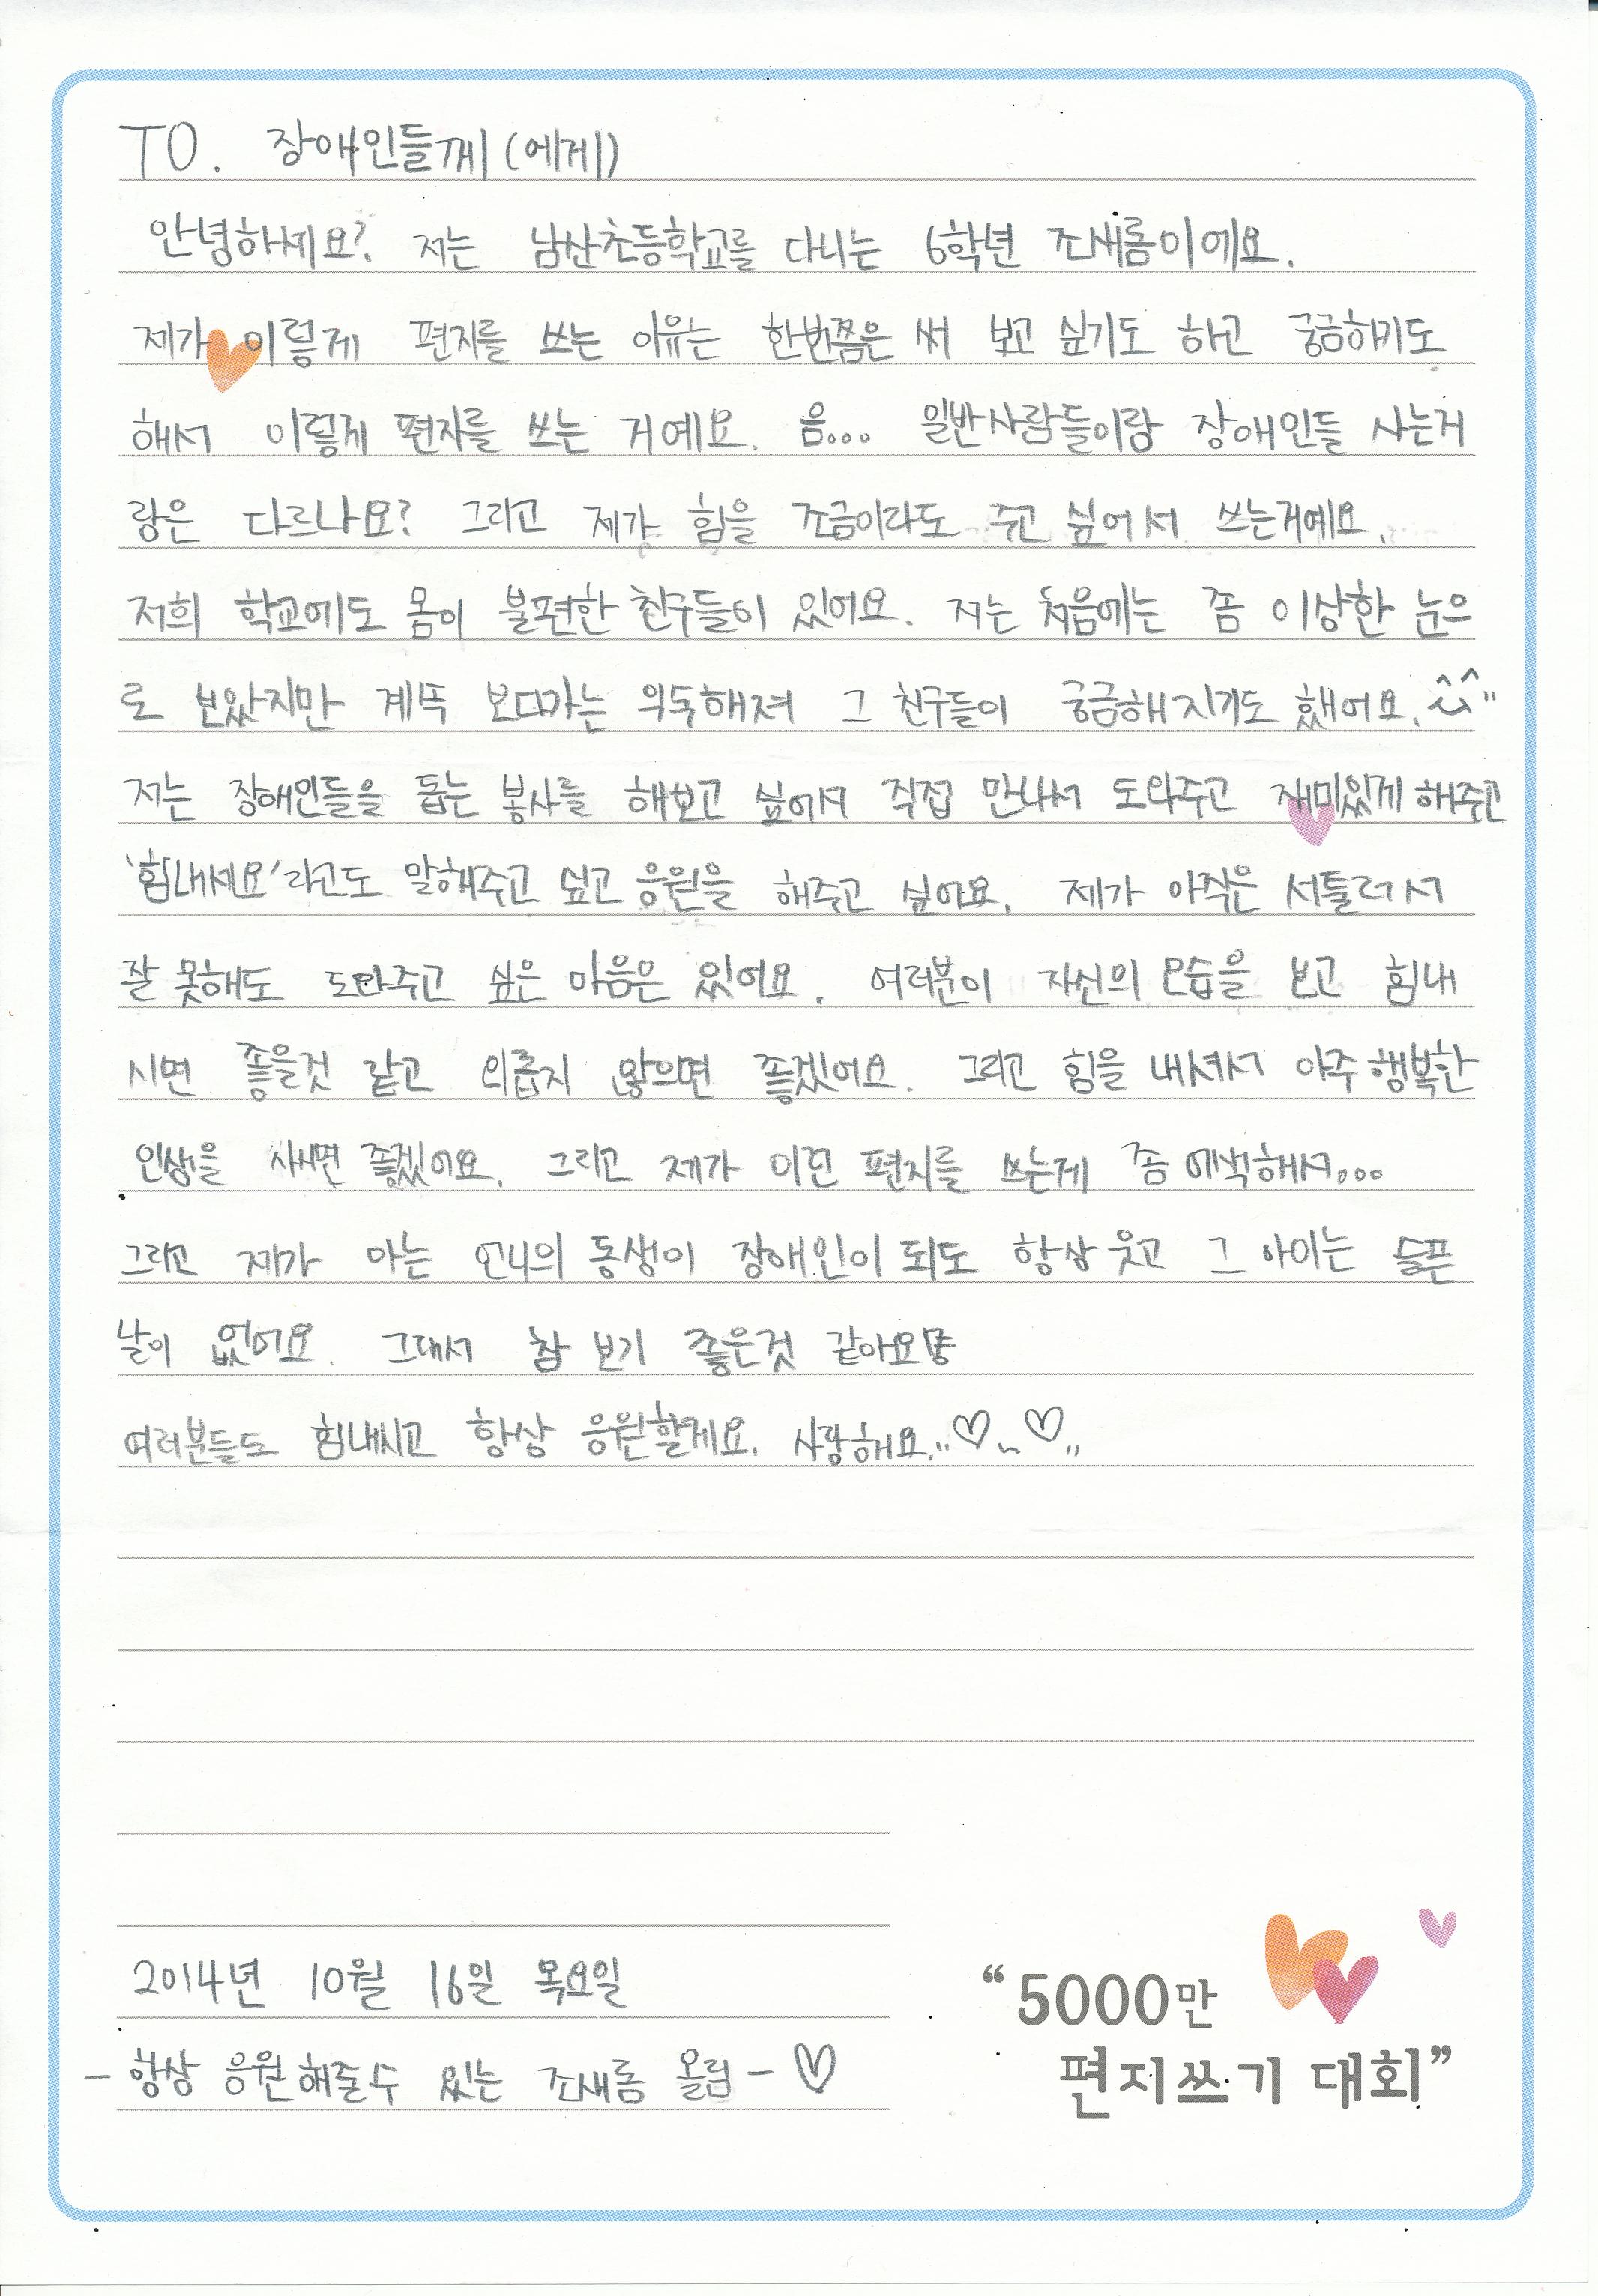 TO. 장애인들께(에게)
안녕하세요? 저는 남산초등학교를 다니는 6학년 조새롬이에요.
제가 이렇게 편지를 쓰는 이유는 한번쯤은 써 보고 싶기도 하고 궁금하기도
해서 이렇게 편지를 쓰는 거예요. 음... 일반사람들이랑 장애인들 사는거
랑은 다르나요? 그리고 제가 힘을 조금이라도 주고 싶어서 쓰는거예요.
저희 학교에도 몸이 불편한 친구들이 있어요. 저는 처음에는 좀 이상한 눈으
로 보았지만 계뚝 보다가는 익둑해져 그 친구들이 궁금해지기도 했어요.^^"
저는 장애인들을 돕는 봉사를 해보고 싶어서 직접 만나서 도와주고 재미있게 해주고
'힘내세요'라고도 말해주고 싶고 응원을 해주고 싶어요. 제가 아직은 서툴러서
잘 못해도 도와주고 싶은 마음은 있어요. 여러분이 자신의 모습을 보고 힘내
시면 좋을것 같고 외롭지 않으면 좋겠어요. 그리고 힘을 내셔서 아주 행복한
인생을 사시면 좋겠어요. 그리고 제가 이런 편지를 쓰는게 좀 어색해서...
그리고 제가 아는 언니의 동생이 장애인이 되도 항상 웃고 그 아이는 슬픈
날이 없어요. 그래서 참 보기 좋은것 같아요
여러분들도 힘내시고 항상 응원할게요. 사랑해요..♡~♡..
2014년 10월 16일 목요일
- 항상 응원해줄수 있는 조새롬 올림 - ♡
“5000만
편지쓰기 대회”